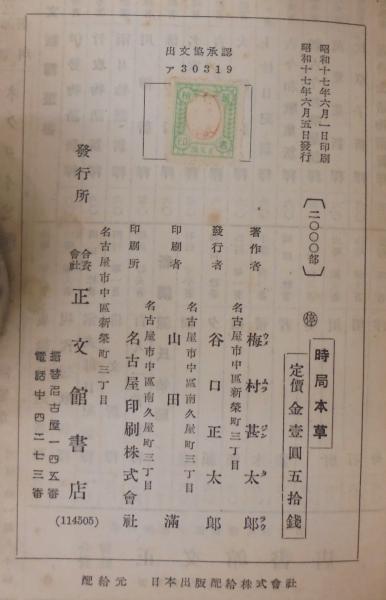 出文協承認
ア30319
昭和十七年六月一日印刷
昭和十七年六月五日發行
〔二〇〇〇部〕
停
時局本草
定價金壹圓五拾錢
著作者
梅村甚太郎
ウメムラジンタラウ
名古屋市中區新榮町三丁目
發行者
谷口正太郎
名古屋市中區南久屋町三丁目
印刷者
山田滿
名古屋市中區南久屋町三丁目
印刷所
名古屋印刷株式會社
名古屋市中區新榮町三丁目
發行所
合資會社
正文館書店
振替名古屋一四五番
電話中四二七三番
(114505)
配給元 日本出版配給株式會社